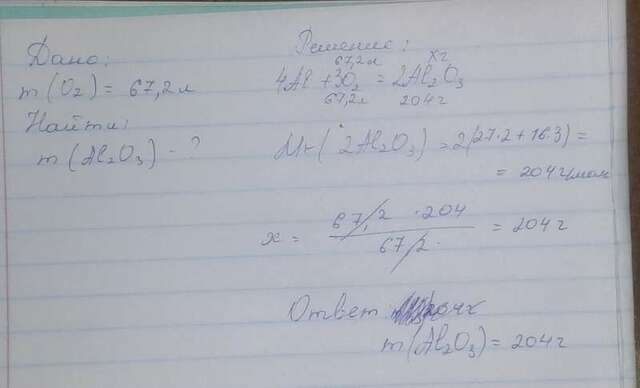 Дано:
m(O₂) = 67,2 л
Найти:
m(Al₂O₃) - ?
Решение:
67,2 л хг
4Al + 3O₂ = 2Al₂O₃
67,2 л 204 г
Mr(2Al₂O₃) = 2(27·2 + 16·3) =
= 204 г/моль
x = 67,2 · 204 / 67,2 = 204 г
Ответ
m(Al₂O₃) = 204 г